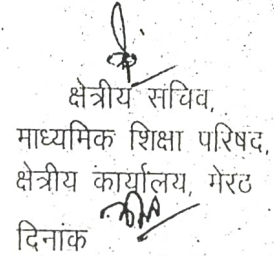 क्षेत्रीय सचिव,
माध्यमिक शिक्षा परिषद,
क्षेत्रीय कार्यालय, मेरठ
दिनांक